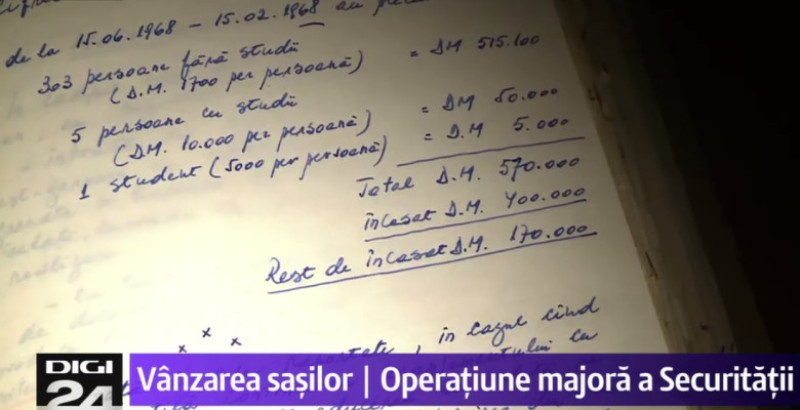 de la 15.06.1968 – 15.02.1968 au
303 persoane fără studii = DM 515.100
(D.M. 1700 per persoană)
5 persoane cu studii = DM 50.000
(DM. 10.000 per persoană)
1 student (5000 per persoană) = D.M 5.000
Total D.M. 570.000
încasat D.M. 400.000
Rest de încasat D.M. 170.000
x x x
în cazul cînd
DIGI
24
Vânzarea sașilor | Operațiune majoră a Securității